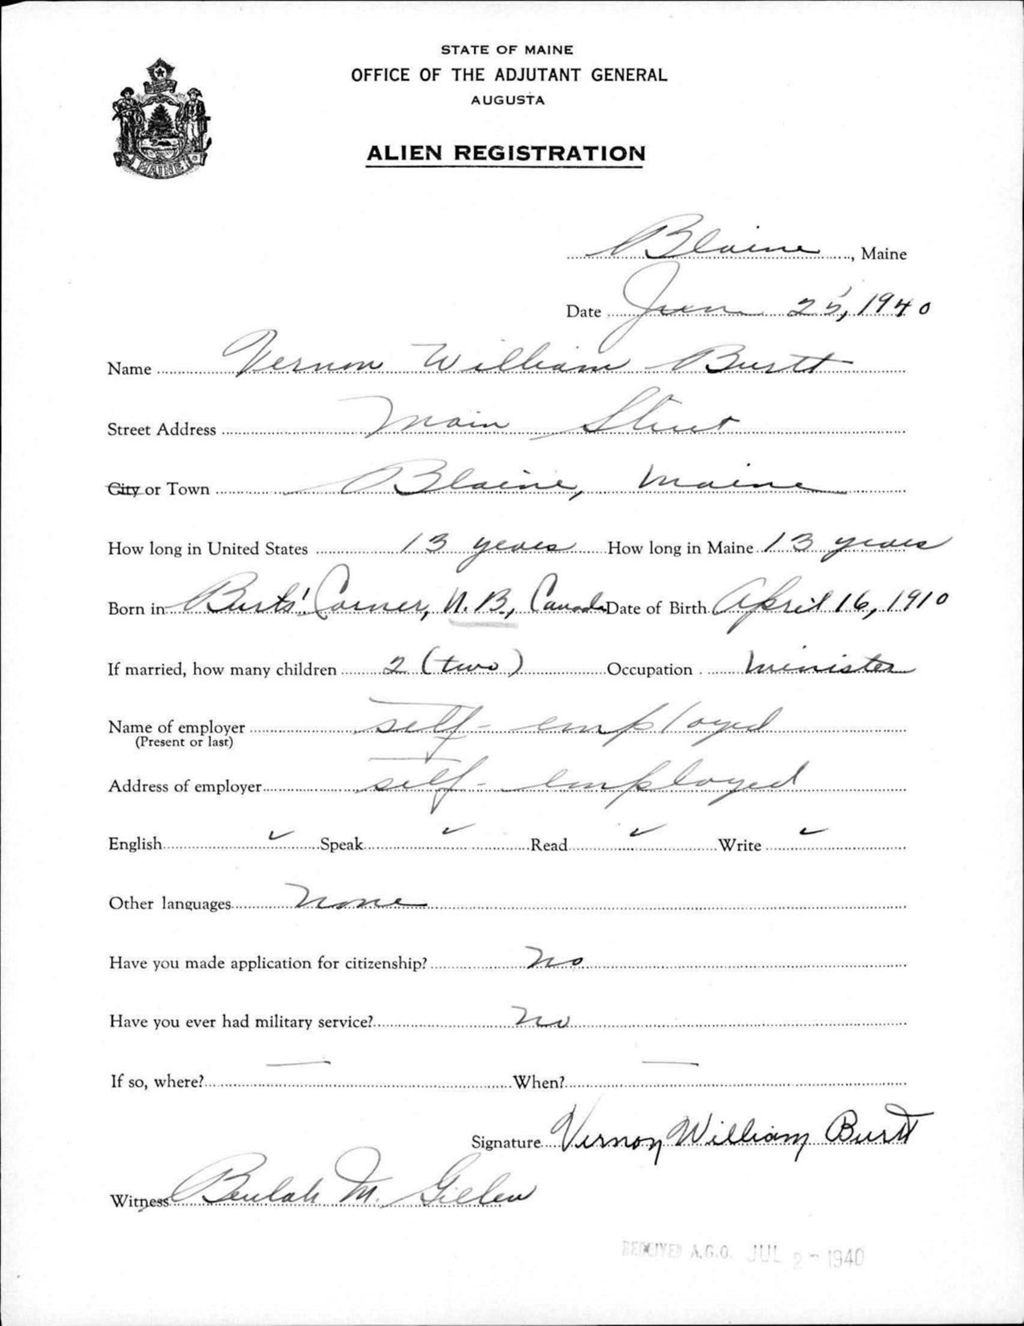 STATE OF MAINE
OFFICE OF THE ADJUTANT GENERAL
AUGUSTA
ALIEN REGISTRATION
MAINE
Blaine, Maine
Date June 25, 1940
Name Vernon William Burtt
Street Address Main Street
City or Town Blaine, Maine
How long in United States 13 years How long in Maine 13 years
Born in Burtts' Corner, N.B., Canada Date of Birth April 16, 1910
If married, how many children 2 (two) Occupation minister
Name of employer self-employed
(Present or last)
Address of employer self-employed
English ✓ Speak ✓ Read ✓ Write ✓
Other languages None
Have you made application for citizenship? No
Have you ever had military service? No
If so, where? — When? —
Signature Vernon William Burtt
Witness Beulah M.
RECEIVED A.G.O. JUL 2 - 1940